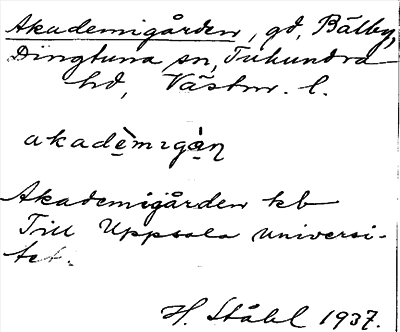 Akademigården, gd, Bälby,
Dingtuna sn, Tuhundra
hd, Västm. l.
akadèmigàṇ
Akademigården kb
Till Uppsala universi-
tet.
H. Ståhl 1937.